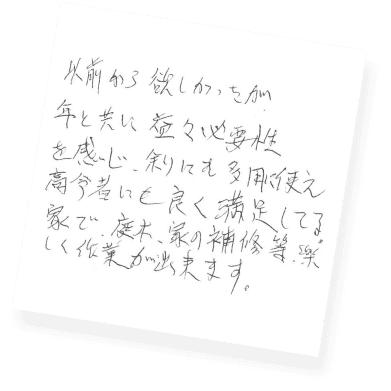 以前から欲しかったが、
年と共に益々必要性
を感じ、余りにも多用に使え
高令者にも良く満足してる。
家で、庭木、家の補修等、楽
しく作業が出来ます。